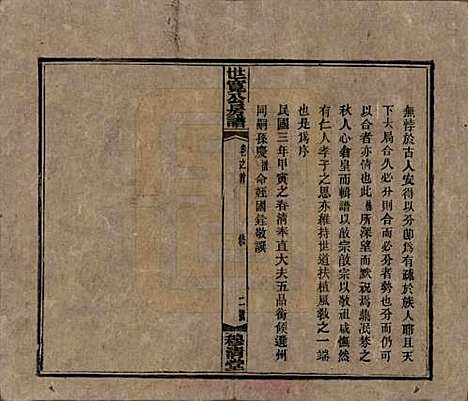 無悖於古人安得以分節爲有疏於族人耶且天
下大局合久必分則合而必分者勢也分而仍可
以合者亦情也此
所深望而默祝焉
秋人心
皇而輯譜以啟宗啟宗以敬祖咸憮然
有仁人孝子之思亦維持世道扶植風敎之一端
也是爲序
民國三年甲寅之春清奉直大夫五品銜候選州
同嗣孫慶
命姪國銓敬譔
卷之首
二
穆清堂